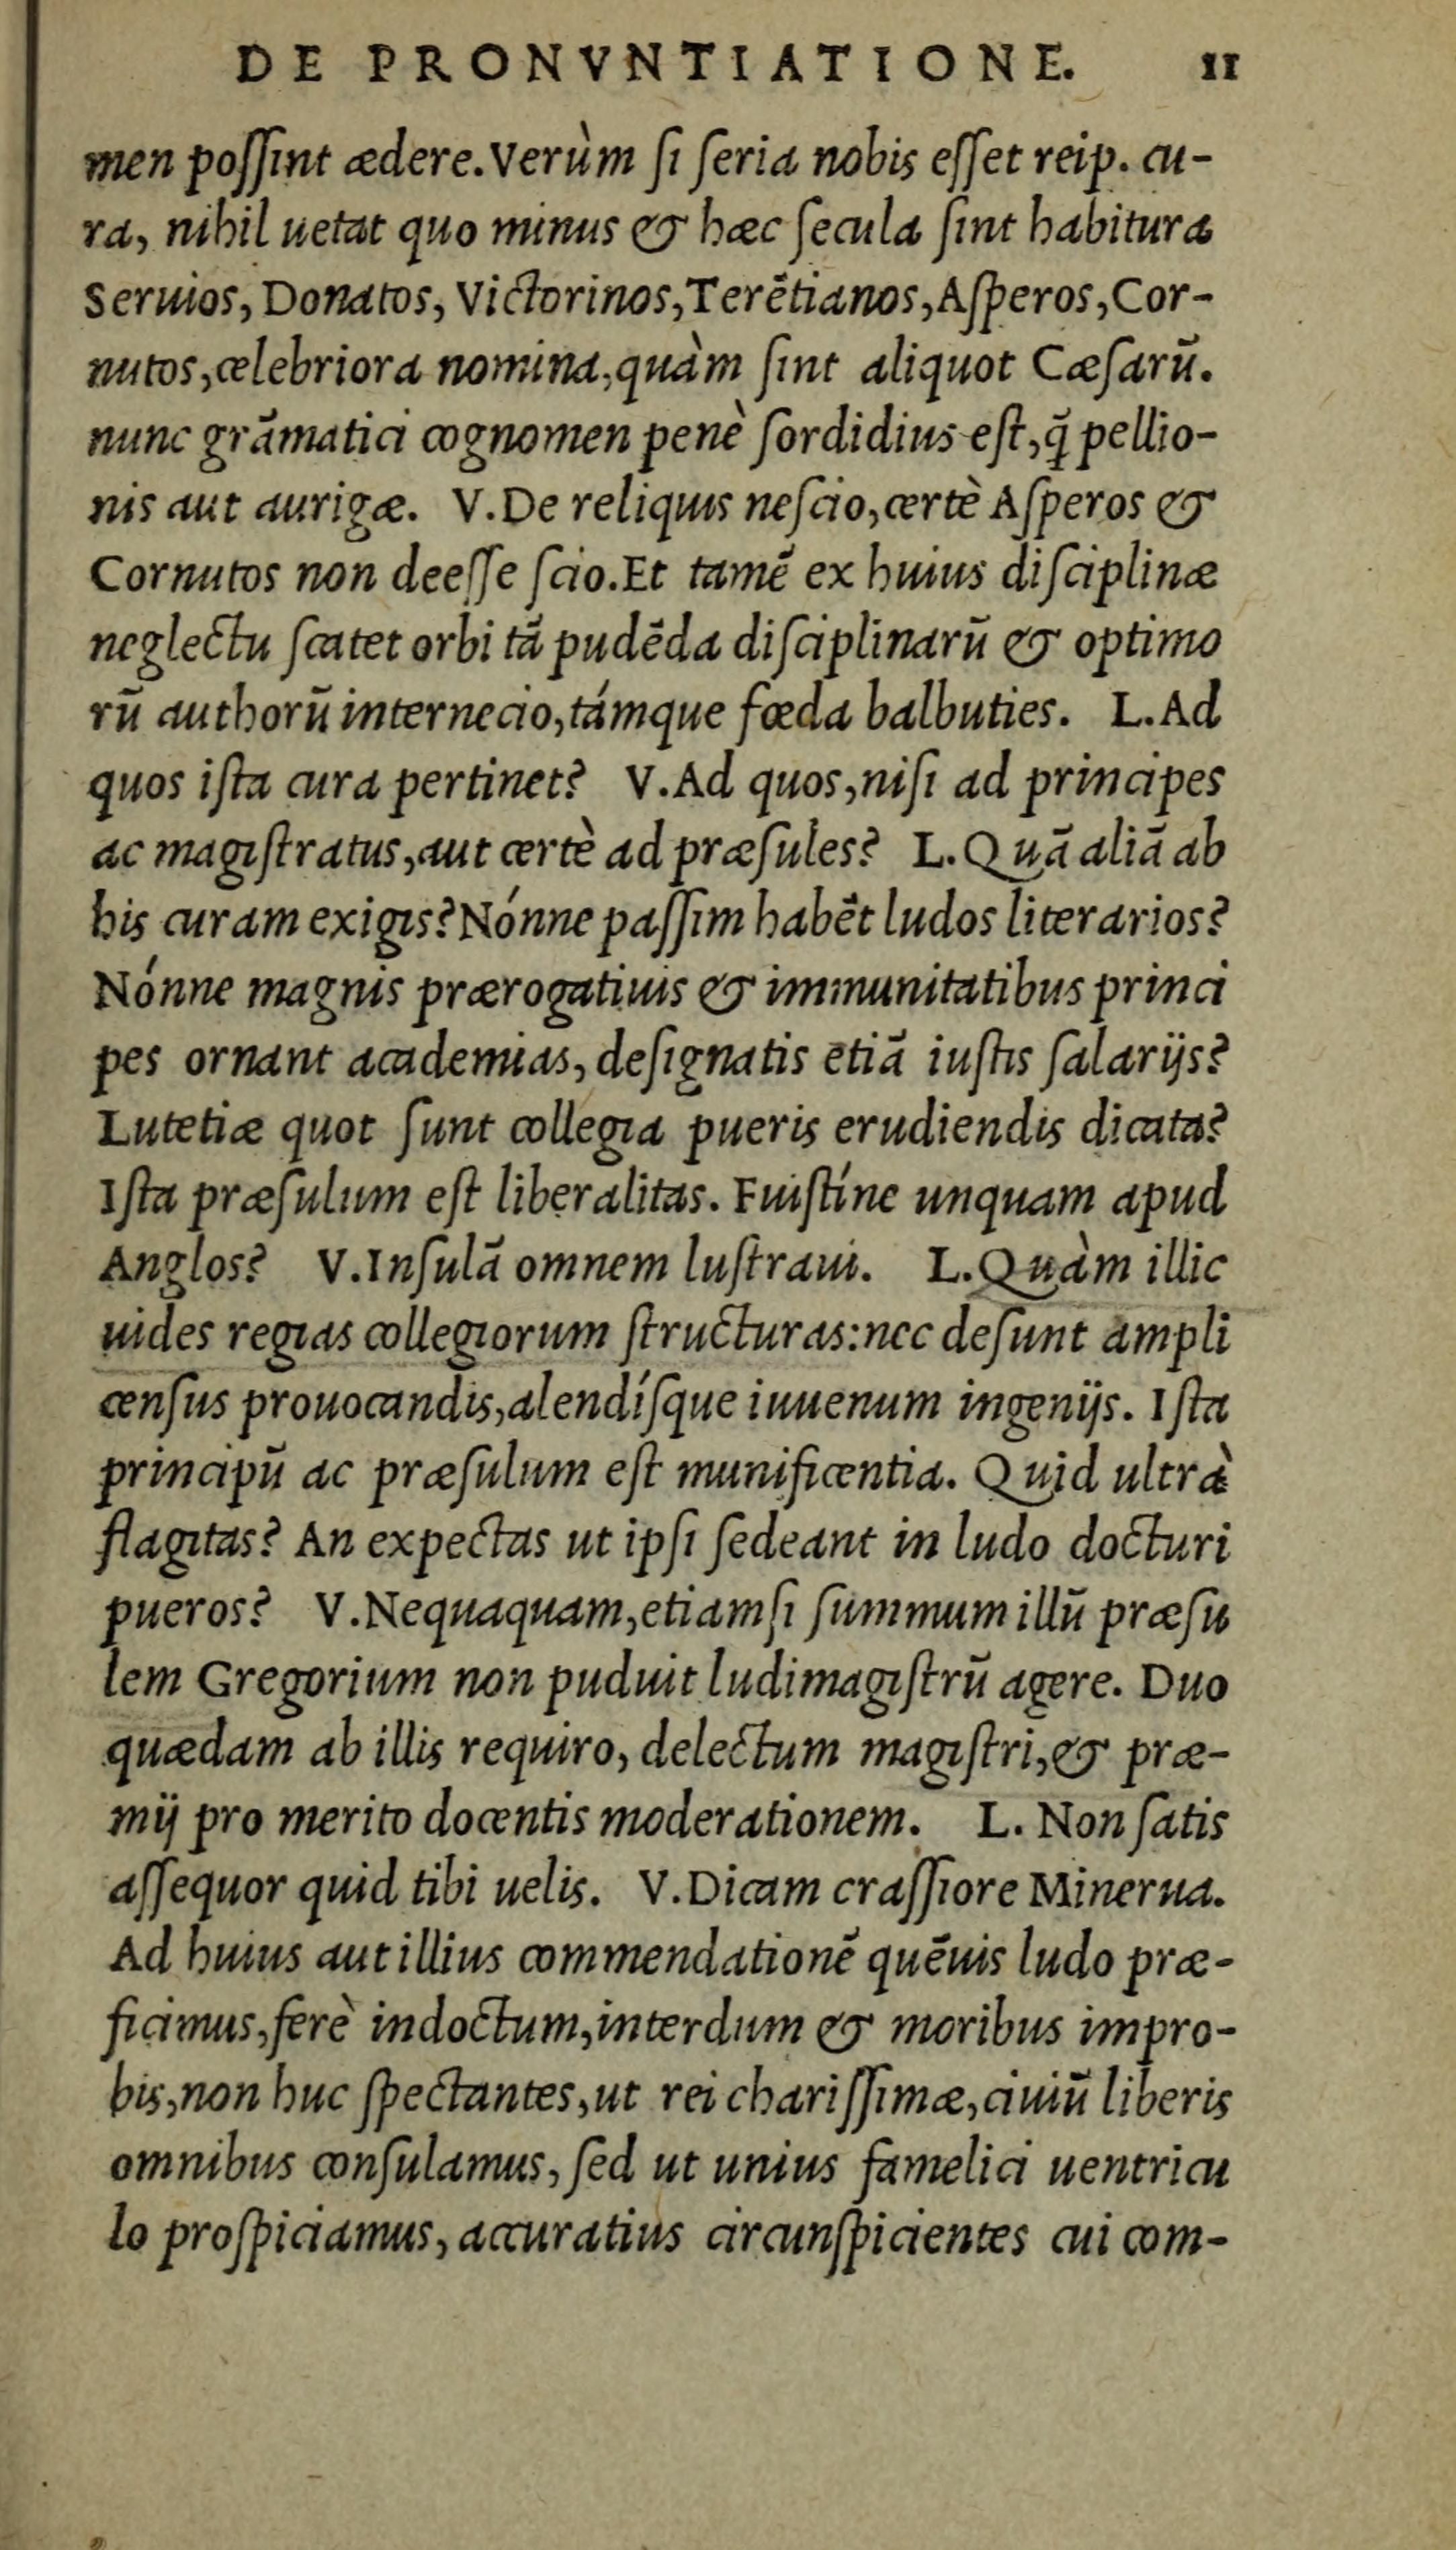 DE PRONVNTIATIONE. 11
men poſſint ædere. Verùm ſi ſeria nobis eſſet reip. cu-
ra, nihil uetat quo minus & hæc ſecula ſint habitura
Seruios, Donatos, Victorinos, Terẽtianos, Aſperos, Cor-
nutos, celebriora nomina, quàm ſint aliquot Cæſarũ.
nunc grãmatici cognomen penè ſordidius eſt, q̃ pellio-
nis aut aurigæ. V. De reliquis neſcio, certè Aſperos &
Cornutos non deeſſe ſcio. Et tamẽ ex huius diſciplinæ
neglectu ſcatet orbi tã pudẽda diſciplinarũ & optimo
rũ authorũ internecio, támque fœda balbuties. L. Ad
quos iſta cura pertinet? V. Ad quos, niſi ad principes
ac magiſtratus, aut certè ad præſules? L. Quã aliã ab
his curam exigis? Nónne paſſim habẽt ludos literarios?
Nónne magnis prærogatiuis & immunitatibus princi
pes ornant academias, deſignatis etiã iuſtis ſalarijs?
Lutetiæ quot ſunt collegia pueris erudiendis dicata?
Iſta præſulum eſt liberalitas. Fuiſtíne unquam apud
Anglos? V. Inſulã omnem luſtraui. L. Quàm illic
uides regias collegiorum ſtructuras: nec deſunt ampli
cenſus prouocandis, alendíſque iuuenum ingenijs. Iſta
principũ ac præſulum eſt munificentia. Quid ultrà
flagitas? An expectas ut ipſi ſedeant in ludo docturi
pueros? V. Nequaquam, etiamſi ſummum illũ præſu
lem Gregorium non puduit ludimagiſtrũ agere. Duo
quædam ab illis requiro, delectum magiſtri, & præ-
mij pro merito docentis moderationem. L. Non ſatis
aſſequor quid tibi uelis. V. Dicam craſſiore Minerua.
Ad huius aut illius commendationẽ quẽuis ludo præ-
ficimus, ferè indoctum, interdum & moribus impro-
bis, non huc ſpectantes, ut rei chariſſimæ, ciuiũ liberis
omnibus conſulamus, ſed ut unius famelici uentricu
lo proſpiciamus, accuratius circunſpicientes cui com-